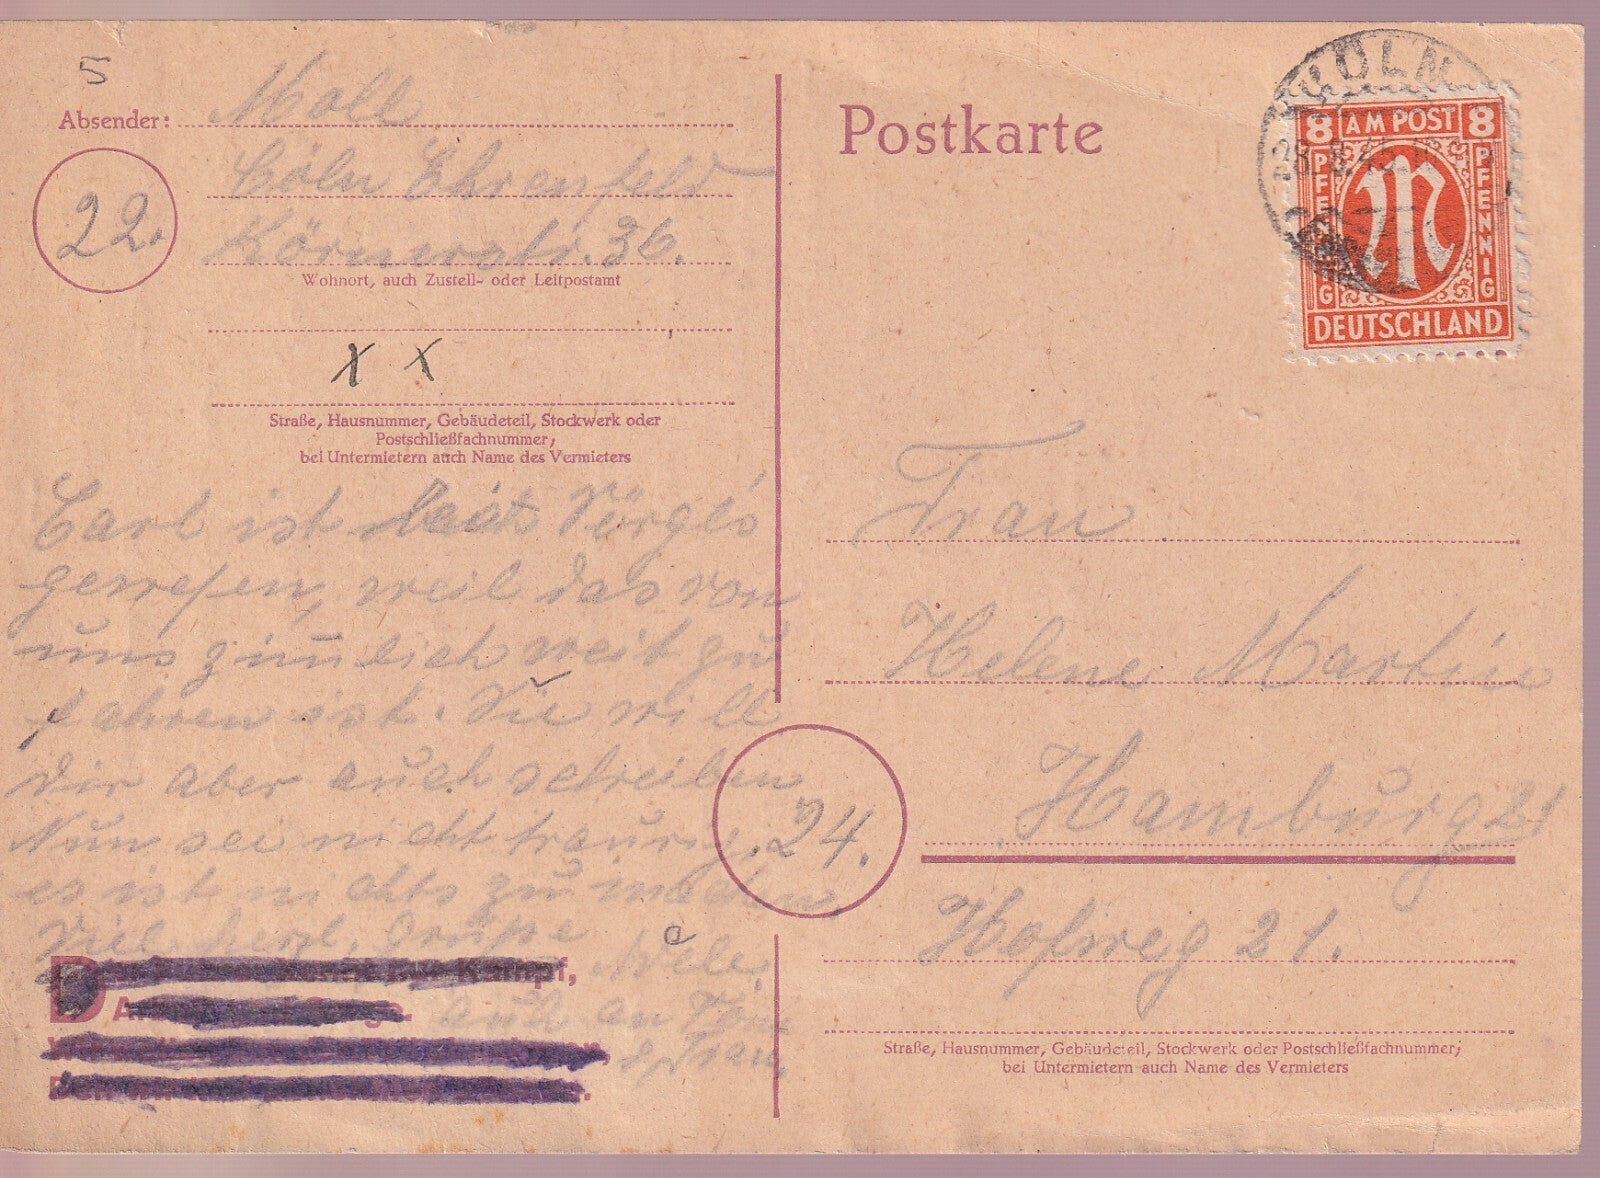 5
Absender: Moll
Cöln Ehrenfeld
22.
Körnerstr. 36.
Wohnort, auch Zustell- oder Leitpostamt
x x
Straße, Hausnummer, Gebäudeteil, Stockwerk oder
Postschließfachnummer;
bei Untermietern auch Name des Vermieters
Carl ist
gewesen, weil das von
uns zimlich weit zu
fahren ist. Sie will
dir aber auch schreiben
Nun sei nicht traurig,
es ist nichts zu machen
Viel herzl. Grüße
auch an
& Frau
Postkarte
KÖLN
28.8.45
8 AM POST 8
PFENNIG
PFENNIG
M
DEUTSCHLAND
Frau
Helene Martin
24.
Hamburg 21
Hofweg 21.
Straße, Hausnummer, Gebäudeteil, Stockwerk oder Postschließfachnummer;
bei Untermietern auch Name des Vermieters